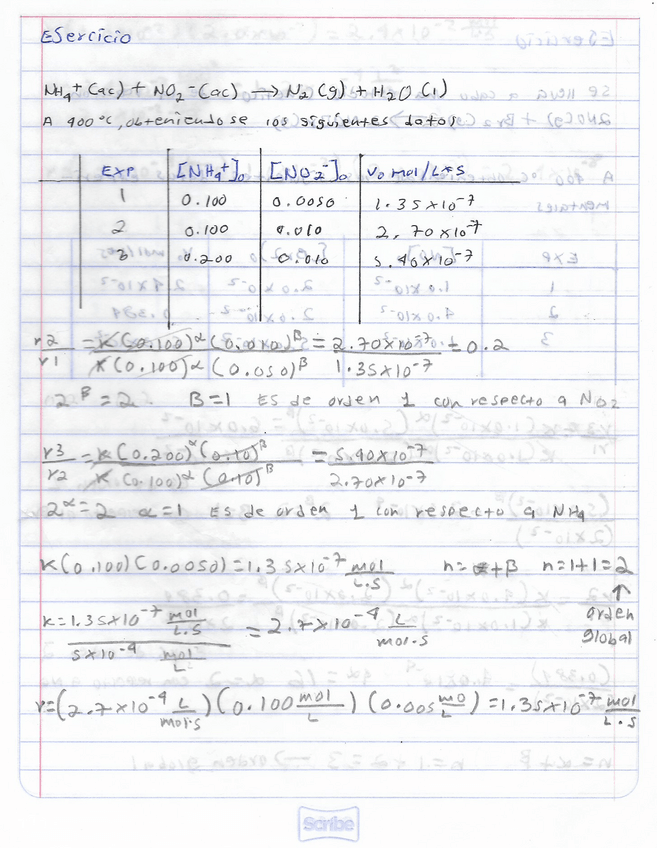 ESercicio
NH4+ (ac) + NO2-(ac) → N2 (g) + H2O (l)
A 400 °C, obteniendo se los siguientes datos:
EXP [NH4+]₀ [NO2-]₀ V₀ mol/L*S
1 0.100 0.0050 1.35×10⁻⁷
2 0.100 0.010 2.70×10⁻⁷
3 0.200 0.010 5.40×10⁻⁷
r2/r1 = K(0.100)α (0.010)β / K(0.100)α (0.050)β = 2.70×10⁻⁷ / 1.35×10⁻⁷ = 0.2
2β = 2. B=1 ES de orden 1 con respecto a NO2
r3/r2 = K(0.200)α (0.10)β / K(0.100)α (0.10)β = 5.40×10⁻⁷ / 2.70×10⁻⁷
2α = 2 α=1 ES de orden 1 con respecto a NH4
K(0.100)(0.0050) = 1.35×10⁻⁷ mol/L.S n=α+β n=1+1=2
↑
orden
global
K = 1.35×10⁻⁷ mol/L.S / 5×10⁻⁴ mol/L = 2.7×10⁻⁴ L/mol.s
r=(2.7×10⁻⁴ L/mol.s)(0.100 mol/L)(0.005 mo/L) = 1.35×10⁻⁷ mol/L.S
Scribe